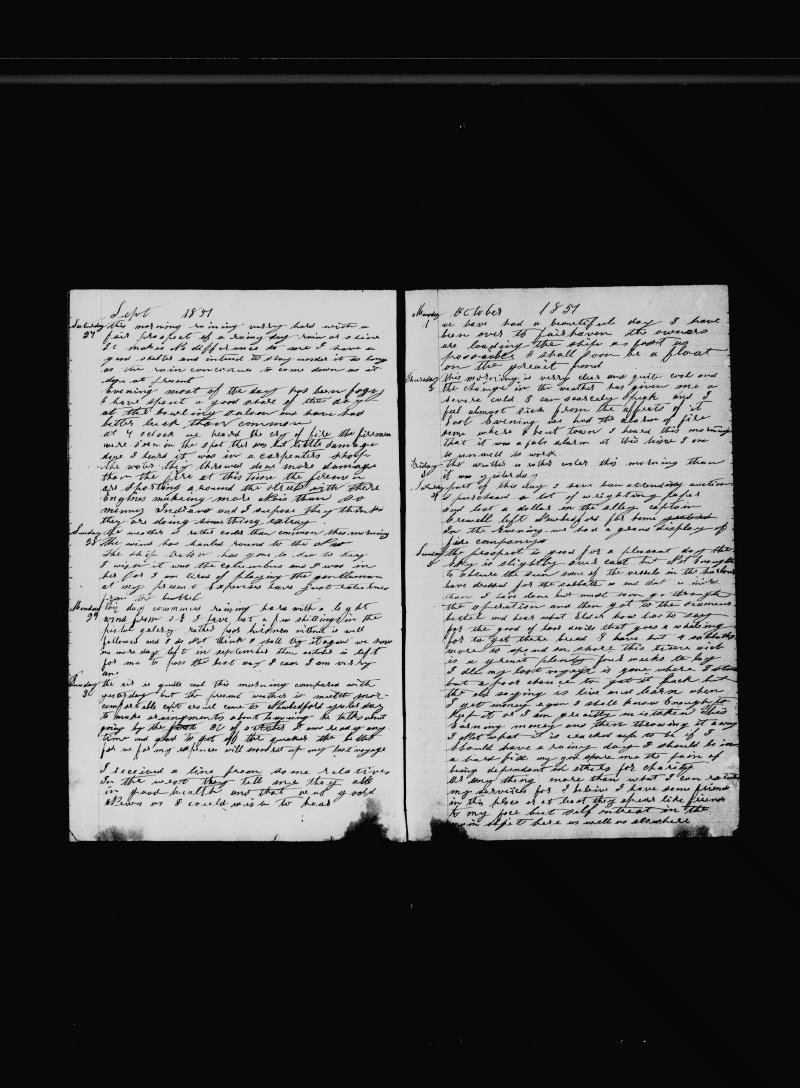 Sept 1851
Saturday this morning raining verry hard with a
27 fair prospect of a rainy day rain or shine
it makes no difference to me I have a
good shelter and intend to stay under it as long
as the rain continues to come down as it
does at present
Evening most of the day has been fogy
I have spent a good share of the day
at the bowling saloon we have had
better luck than common
at 4 oclock we heard the cry of fire the firemen
were soon on the spot there was but little damage
done I heard it was in a carpenters shop
the water they throwed done more damage
than the fire at this time the firemen
are sporting around the streets with there
Engines making more nois than so
menny Indians and I supose they think
they are doing something extry
Sunday the weather is rather colder than common this morning
28 the wind has hauled round to the
the ship has gone to sea to day
I wish it was the columbus and I was in
her for I am tired of playing the gentleman
at my present expenses have just returned
from the bethel
Monday this day commences raining hard with a light
29 wind from I have lost a few shillings in the
pistol galery rather poor
followed and I do not think I shall try it again we have
one more day left in september then october is left
for me to pass the best way I can I am verry
Tuesday the air is quite cool this morning compared with
30 yesterday but the present weather is much more
comfortable capt crowel came to Newbedford yesterday
to make arangments about he talks about
going by the of october I am ready any
time and glad to get off the quicker the better
for me for my expences will my last voyage
I received a line from some relatives
in the west they tell me they all
in good health and that is as good
News as I could wish to hear
October 1851
1 we have had a beautiful day I have
been over to fairhaven the owners
are loading the ship as fast as
possable I shall soon be a float
on the great pond
Thursday this morning is verry clear and quite cool and
the change in the weather has given me a
severe cold I can scarcely speak and I
feel almost sick from the affects of it
Last Evening we had the alarm of fire
some where about town I heard this morning
that it was a fals alarm at this time I am
to unwell to work
Friday the weather is rather woler this morning than
it was yesterday
part of this day I have been attending auction
I purchased a lot of wrighting paper
and lost a dollar in the alley captain
Crowell left Newbedford for home
in the Evening we had a grand display of
fire companys
Sunday the prospect is good for a pleasant day the
sky is slightly over cast but not enough
to obscure the sun some of the vessels in the harbour
have dressed for the sabbath and that is more
than I have done but must soon go through
the operation and then go to the seamens
bethel and hear what Elder how has to say
for the good of poor devils that goes a whaleing
for to get there bread I have but 4 sabbaths
more to spend on shore this time wich
is a great plenty four weeks to lay
Idle my last voyage is gone where I stand
but a poor chance to get it back but
the old saying is live and learn when
I get money again I shall know Enough to
Keep it or I am greatly mistaken this
Earning money and then throwing it away
I not what it is cracked up to be if I
should have a rainy day I should be in
a hard fix my god spare me the pain of
being dependant on others for charity
or any thing more than what I can
my services for I believe I have some friends
in this place or at least they apear like friends
to my face but self intrest in the
main object here as well as elswhere